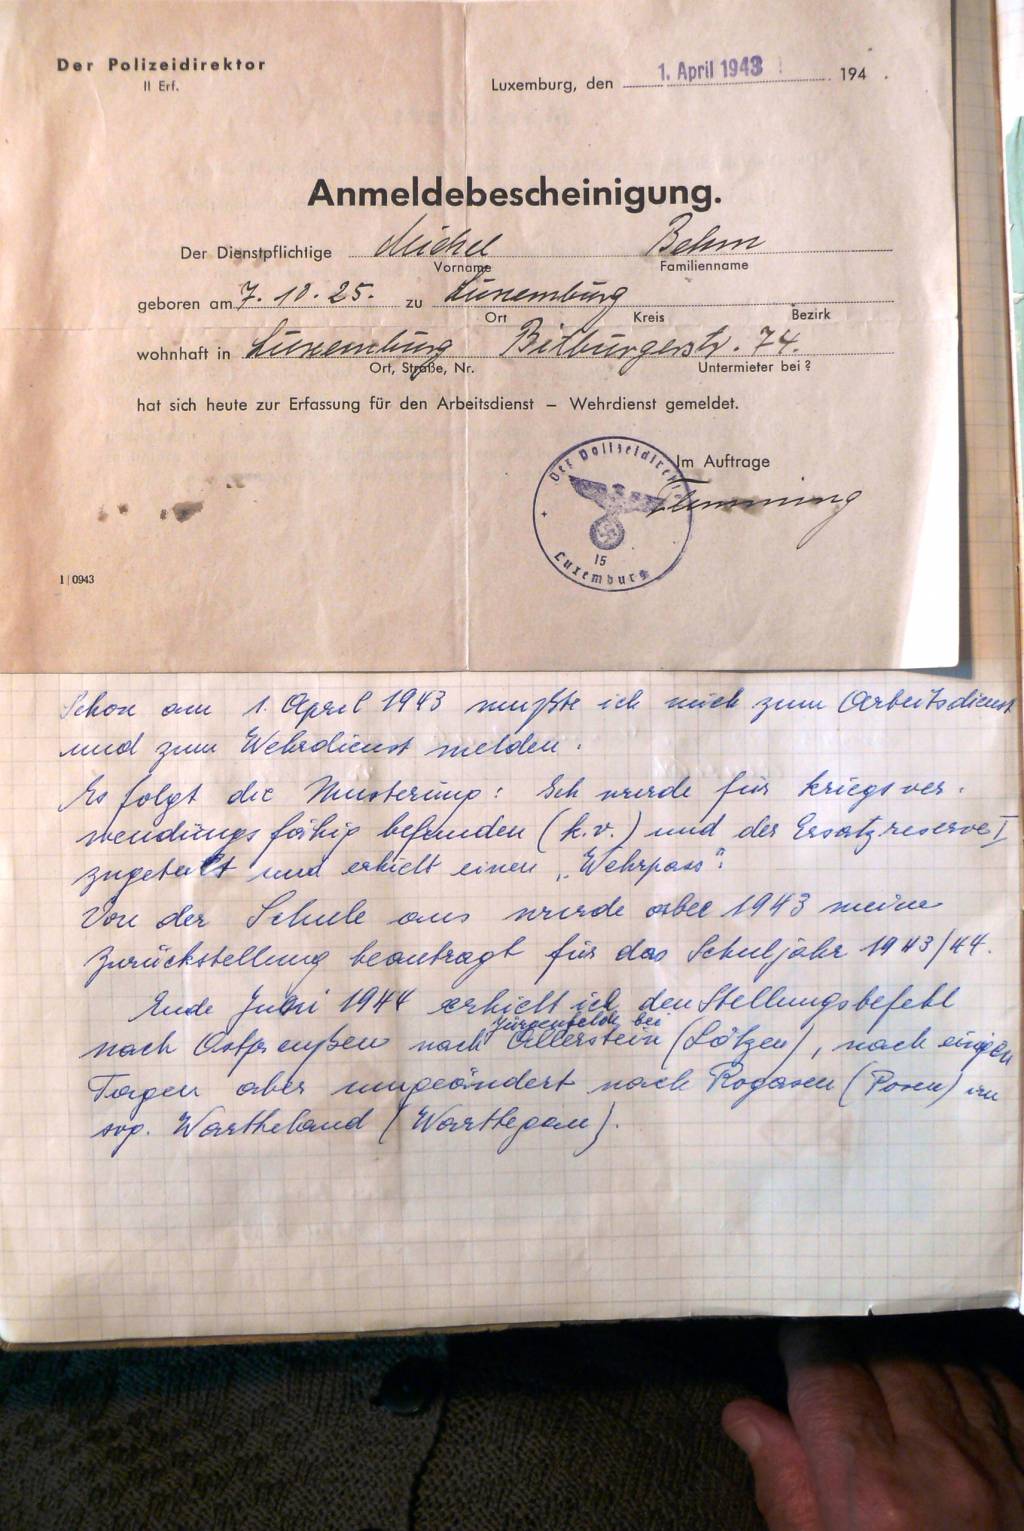 Der Polizeidirektor
II Erf.
Luxemburg, den 1. April 1943 194 .
Anmeldebescheinigung.
Der Dienstpflichtige Michel Behm
Vorname Familienname
geboren am 7. 10. 25. zu Luxemburg
Ort Kreis Bezirk
wohnhaft in Luxemburg Bitburgerstr. 74.
Ort, Straße, Nr. Untermieter bei?
hat sich heute zur Erfassung für den Arbeitsdienst – Wehrdienst gemeldet.
Im Auftrage
Der Polizeidirektor
15
Luxemburg
1 | 0943
Schon am 1. April 1943 mußte ich mich zum Arbeitsdienst
und zum Wehrdienst melden.
Es folgt die Musterung: Ich wurde für kriegsver-
wendungsfähig befunden (k.v.) und der Ersatzreserve I
zugeteilt und erhielt einen „Wehrpass".
Von der Schule aus wurde aber 1943 meine
Zurückstellung beantragt für das Schuljahr 1943/44.
Ende Juni 1944 erhielt ich den Stellungsbefehl
Jürgenfelde bei
nach Ostpreußen nach Allerstein (Lötzen), nach einigen
Tagen aber umgeändert nach Rogasen (Posen) im
sog. Wartheland (Warthegau).